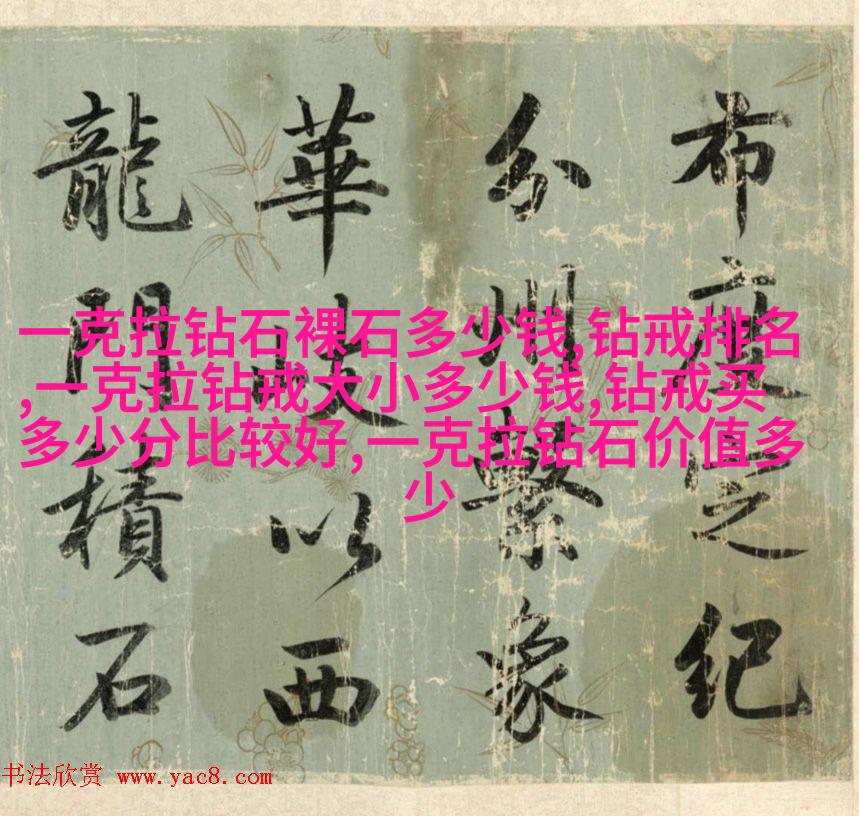 布度定紀
分州繫象
華以西
龍門積石
一克拉钻石裸石多少钱,钻戒排名
,一克拉钻戒大小多少钱,钻戒买
多少分比较好,一克拉钻石价值多
少
书法欣赏 www.yac8.com